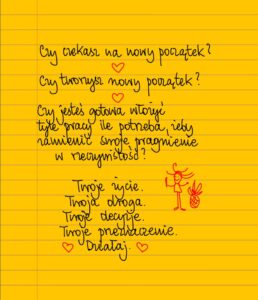 Czy czekasz na nowy początek?
Czy tworzysz nowy początek?
Czy jesteś gotowa włożyć
tyle pracy ile potrzeba, żeby
zamienić swoje pragnienie
w rzeczywistość?
Twoje życie.
Twoja droga.
Twoje decyzje.
Twoje przeznaczenie.
Działaj.